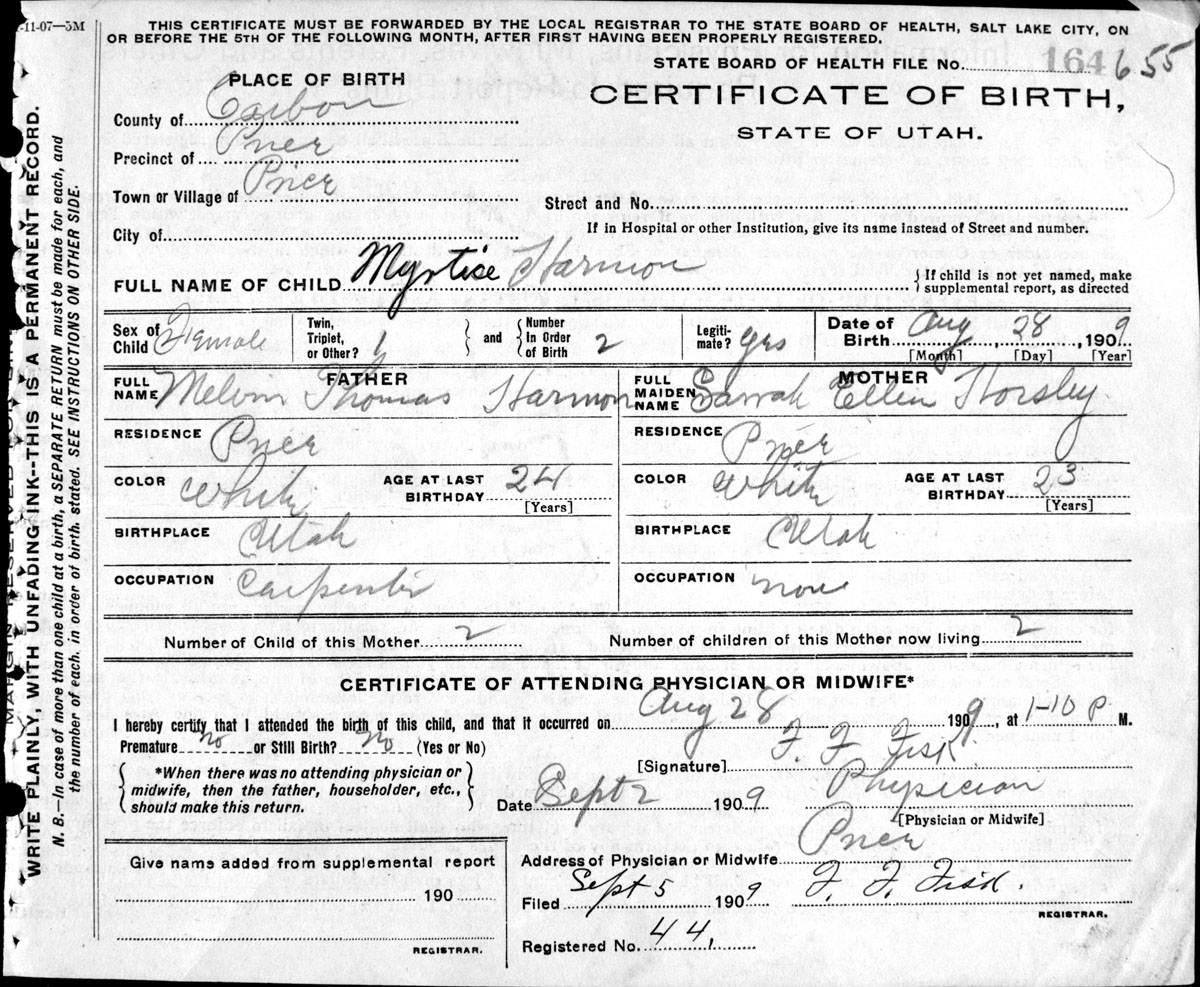 -11-07—5M
THIS CERTIFICATE MUST BE FORWARDED BY THE LOCAL REGISTRAR TO THE STATE BOARD OF HEALTH, SALT LAKE CITY, ON
OR BEFORE THE 5TH OF THE FOLLOWING MONTH, AFTER FIRST HAVING BEEN PROPERLY REGISTERED.
STATE BOARD OF HEALTH FILE No. 164 655
CERTIFICATE OF BIRTH,
STATE OF UTAH.
PLACE OF BIRTH
County of Carbon
Precinct of Price
Town or Village of Price
City of
Street and No.
If in Hospital or other Institution, give its name instead of Street and number.
FULL NAME OF CHILD Myrtice Harmon
{ If child is not yet named, make
supplemental report, as directed
Sex of Child Female
Twin, Triplet, or Other? 1 } and { Number In Order of Birth 2
Legiti- mate? yes
Date of Birth Aug 28, 1909
[Month] [Day] [Year]
FATHER
FULL NAME Melvin Thomas Harmon
RESIDENCE Price
COLOR White AGE AT LAST BIRTHDAY 24
[Years]
BIRTHPLACE Utah
OCCUPATION Carpenter
MOTHER
FULL MAIDEN NAME Sarrah Ellen Horsley
RESIDENCE Price
COLOR White AGE AT LAST BIRTHDAY 23
[Years]
BIRTHPLACE Utah
OCCUPATION none
Number of Child of this Mother 2 Number of children of this Mother now living 2
CERTIFICATE OF ATTENDING PHYSICIAN OR MIDWIFE*
I hereby certify that I attended the birth of this child, and that it occurred on Aug 28 1909, at 1-10 P M.
Premature no or Still Birth? No (Yes or No)
[Signature] F. F. Fisk
{ *When there was no attending physician or
midwife, then the father, householder, etc.,
should make this return. }
Date Sept 2 1909 Physician
[Physician or Midwife]
Address of Physician or Midwife Price
Give name added from supplemental report
190
REGISTRAR.
Filed Sept 5 1909 F. F. Fisk.
REGISTRAR.
Registered No. 44,
MARGIN RESERVED FOR
WRITE PLAINLY, WITH UNFADING INK--THIS IS A PERMANENT RECORD.
N. B.—In case of more than one child at a birth, a SEPARATE RETURN must be made for each, and
the number of each, in order of birth, stated. SEE INSTRUCTIONS ON OTHER SIDE.